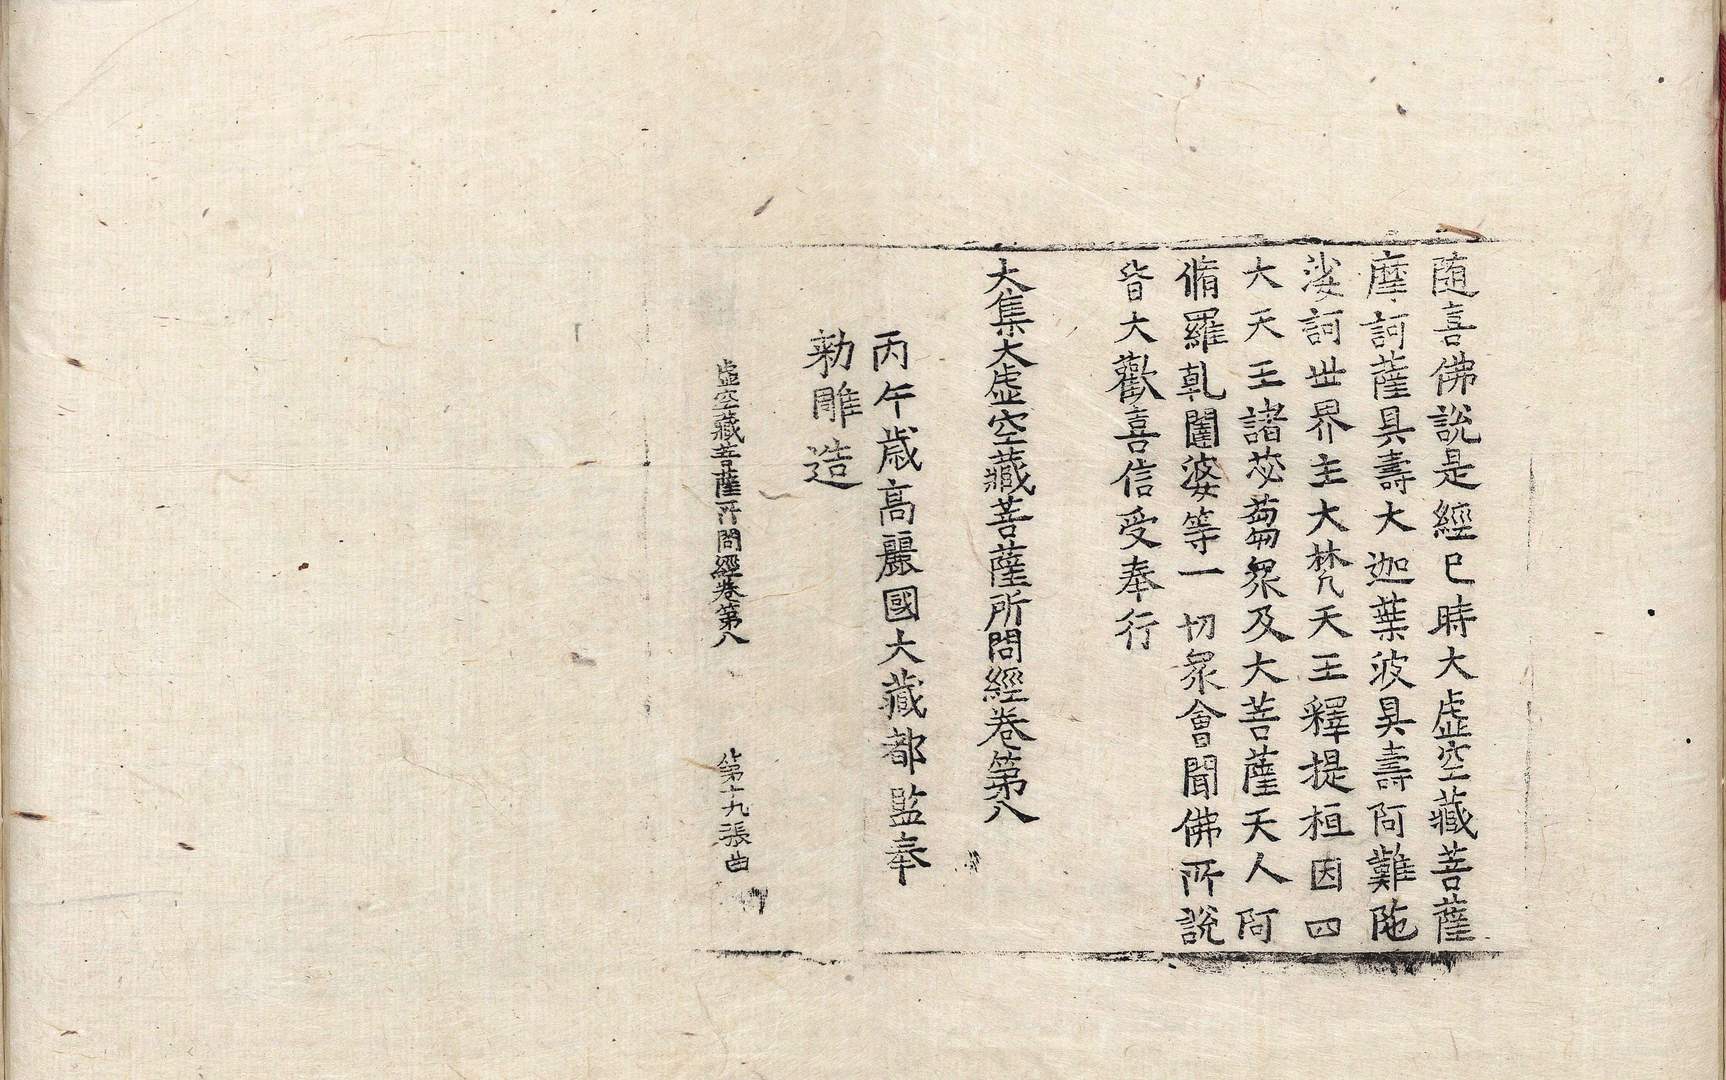 随喜佛說是經已時大虛空藏菩薩
摩訶薩具壽大迦葉波具壽阿難陁
娑訶世界主大梵天王釋提桓因四
大天王諸苾蒭衆及大菩薩天人阿
脩羅乹闥婆等一切衆會聞佛所說
皆大歡喜信受奉行
大集大虛空藏菩薩所問經卷第八
丙午歲高麗國大藏都監奉
勑雕造
虛空藏菩薩所問經卷第八 第十九張 曲